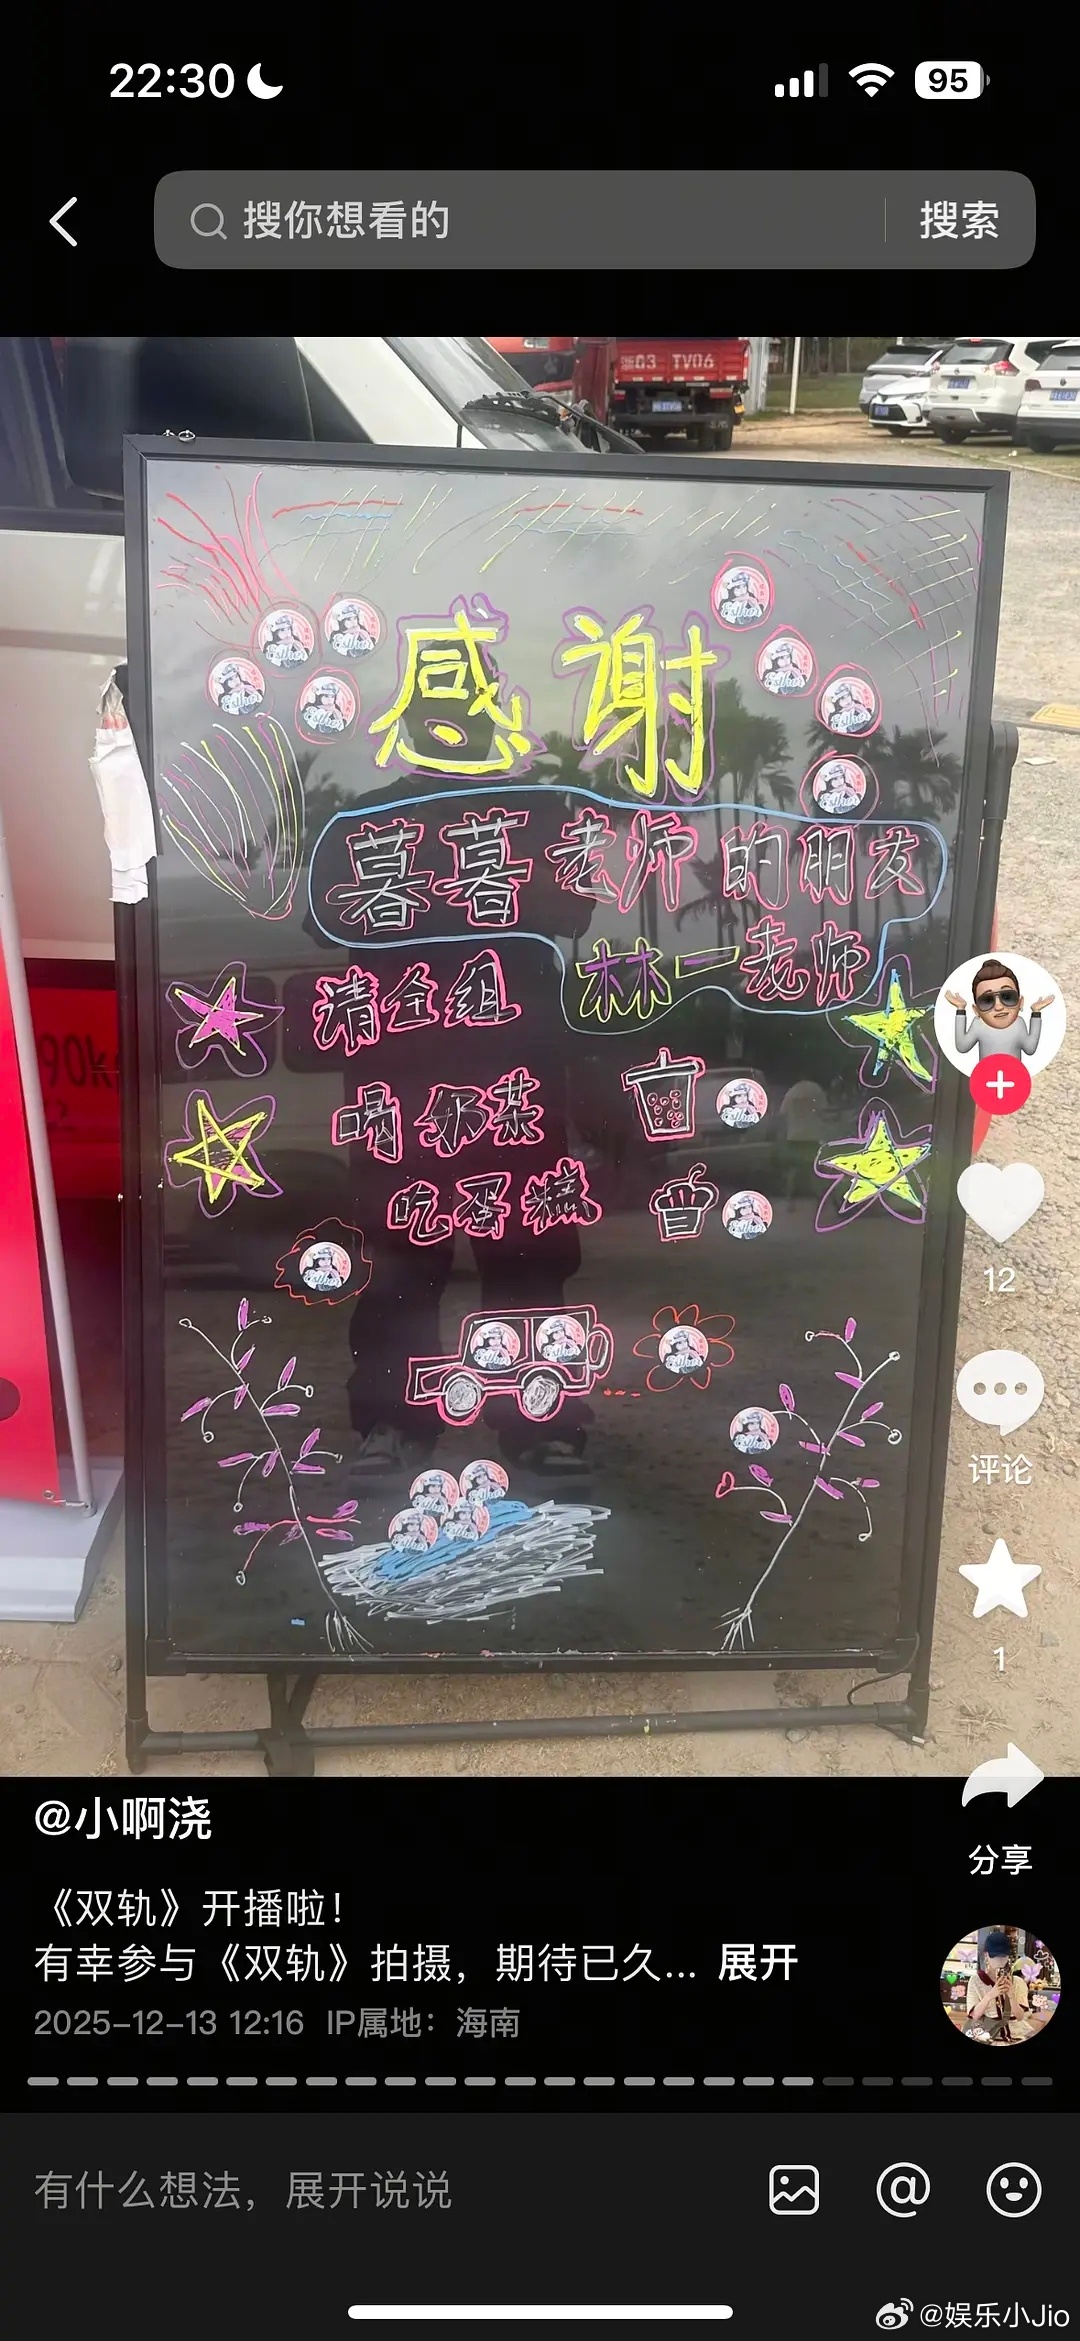 22:30
95
搜你想看的
搜索
浙G3 TV06
感谢
暮暮老师的朋友
林一老师
请全组
喝奶茶
吃蛋糕
Esther
12
评论
1
分享
@小啊浇
《双轨》开播啦！
有幸参与《双轨》拍摄，期待已久... 展开
2025-12-13 12:16 IP属地：海南
有什么想法，展开说说
@娱乐小Jio